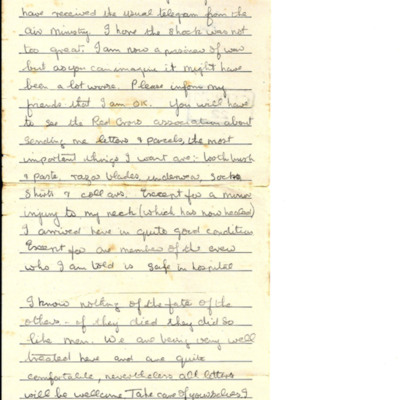 have received the usual telegram from the
air ministry I hope the shock was not
too great. I am now a prisoner of war
but as you can imagine it might have
been a lot worse. Please inform my
friends that I am OK. You will have
to see the Red Cross association about
sending me letters & parcels, the most
important things I want are:- tooth brush
& paste, razor blades, underwear, socks
shirts & collars. Except for a minor
injury to my neck (which has now healed)
I arrived here in quite good condition
Except for one member of the crew
who I am told is safe in hospital
I know nothing of the fate of the
others - if they died they did so
like men. We are being very well
treated here and are quite
comfortable, nevertheless all letters
will be wellcome. Take care of yourselves &